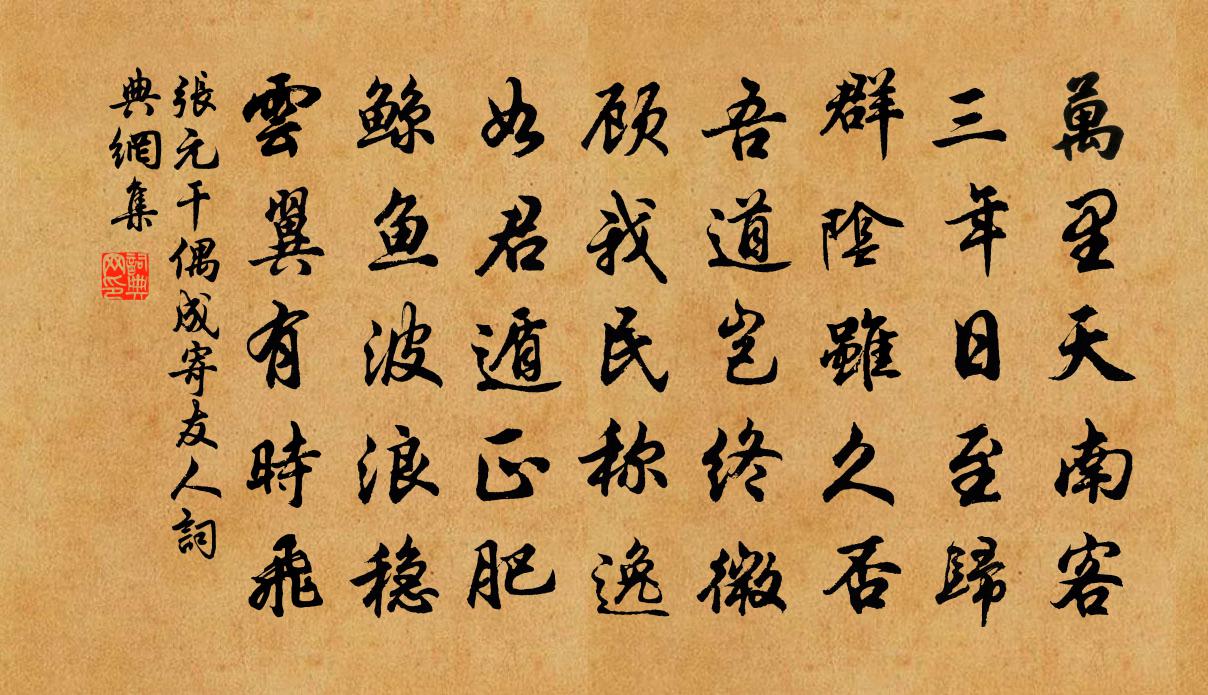 萬里天南客
三年日至歸
群陰雖久否
吾道岂終微
顾我民称逸
如君遁正肥
鲸鱼波浪穏
雲翼有時飛
張元干偶成寄友人詞
典網集
詞典
网印